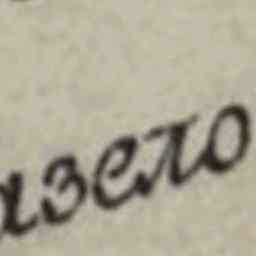 азело